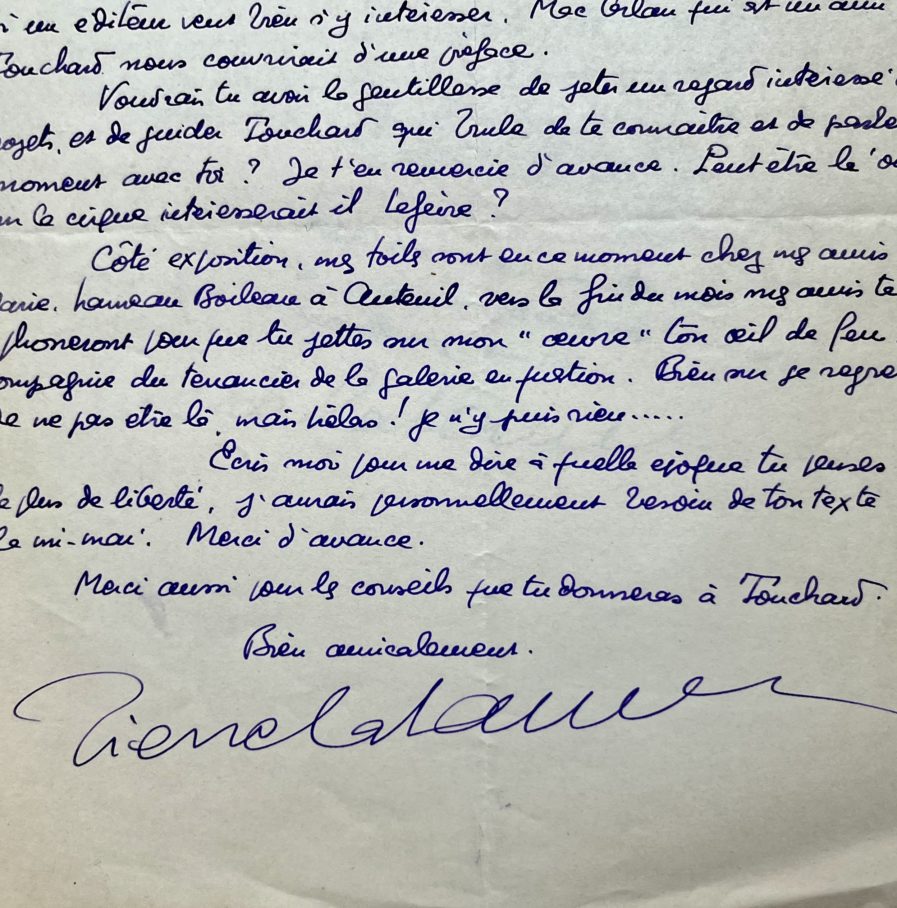 i un editeur veut bien s'y interesser. Mac Orlan qui est un ami
Touchard nous couvrirait d'une préface.
Voudrais tu avoir la gentillesse de jeter un regard interessé
rojets, et de guider Touchard qui brule de te connaitre et de parle
moment avec toi ? Je t'en remercie d'avance. Peut être le
le cirque interesserait il Lefèvre ?
Côté exposition, mes toiles sont en ce moment chez mes amis
hameau Boileau à Auteuil, vers la fin du mois mes amis te
phoneront pour que tu jettes sur mon "œuvre" ton œil de feu
ompagnie du tenancier de la galerie en question. Bien sur je regre
e ne pas etre là, mais hélas ! je n'y puis rien.....
Ecris moi pour me dire à quelle epoque tu penses
le plus de liberté, j'aurais personnellement besoin de ton texte
la mi-mai. Merci d'avance.
Merci aussi pour les conseils que tu donneras à Touchard.
Bien amicalement.
Pierre